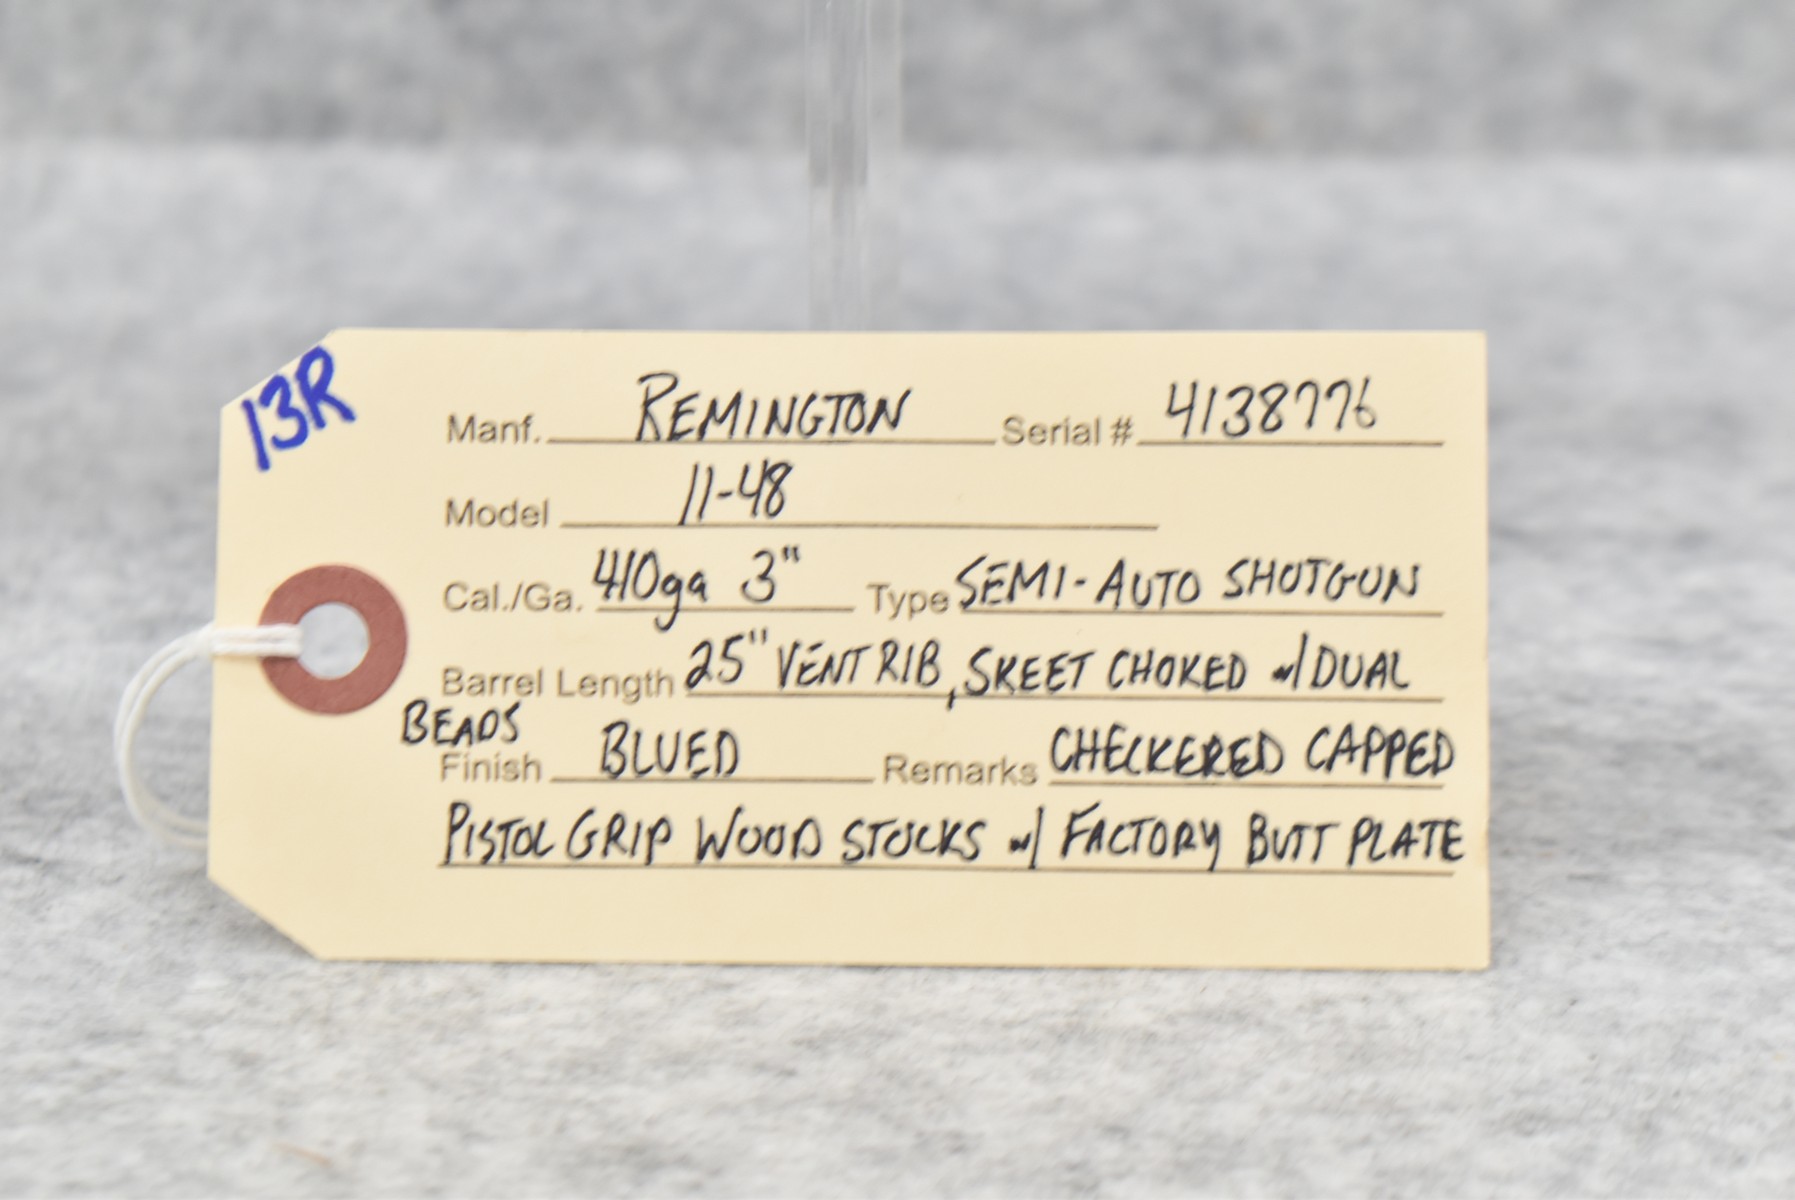 13R
Manf. REMINGTON Serial # 4138776
Model 11-48
Cal./Ga. 410ga 3" Type SEMI-AUTO SHOTGUN
Barrel Length 25" VENT RIB, SKEET CHOKED w/ DUAL
BEADS
Finish BLUED Remarks CHECKERED CAPPED
PISTOL GRIP WOOD STOCKS w/ FACTORY BUTT PLATE